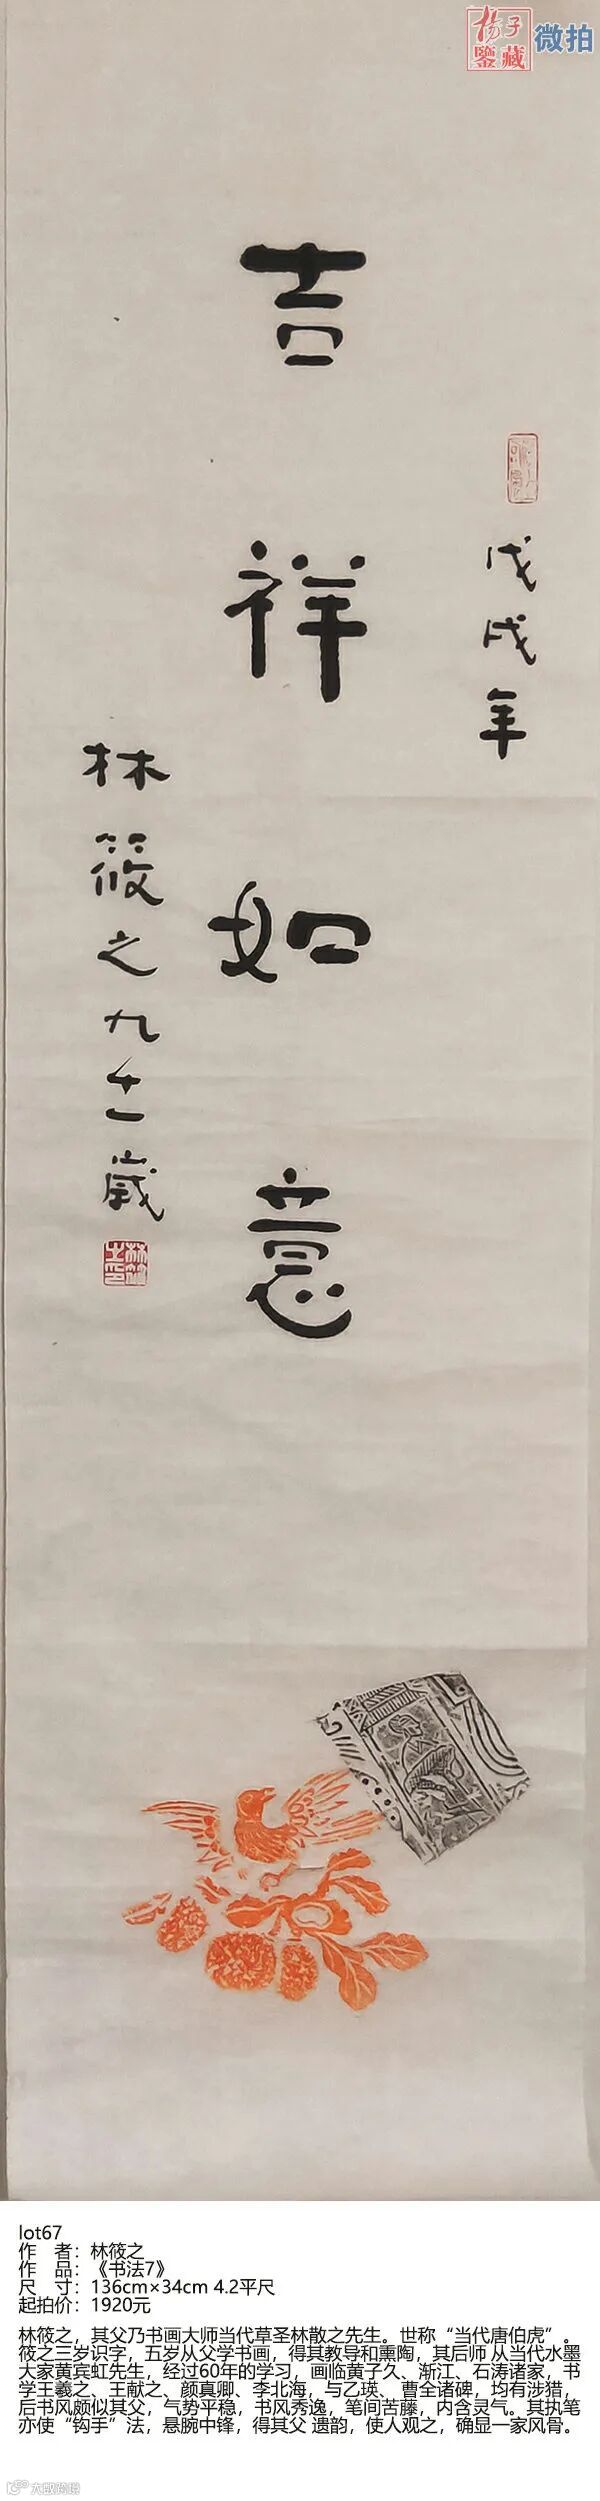 杨子鑒藏
微拍
吉祥如意
戊戌年
林筱之九十一歲
lot67
作 者：林筱之
作 品：《书法7》
尺 寸：136cm×34cm 4.2平尺
起拍价：1920元
林筱之，其父乃书画大师当代草圣林散之先生。世称“当代唐伯虎”。
筱之三岁识字，五岁从父学书画，得其教导和熏陶，其后师 从当代水墨
大家黄宾虹先生，经过60年的学习，画临黄子久、渐江、石涛诸家，书
学王羲之、王献之、颜真卿、李北海，与乙瑛、曹全诸碑，均有涉猎，
后书风颇似其父，气势平稳，书风秀逸，笔间苦藤，内含灵气。其执笔
亦使“钩手”法，悬腕中锋，得其父 遗韵，使人观之，确显一家风骨。